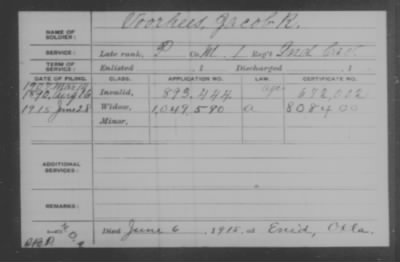 NAME OF SOLDIER: Voorhees, Jacob R.
SERVICE: Late rank, P Co. M, 1 Reg't Ind Cav
TERM OF SERVICE: Enlisted , 1 Discharged , 1
DATE OF FILING. CLASS. APPLICATION NO. LAW. CERTIFICATE NO.
1907 Mar
1890, Aug Invalid, 893,444 age 672,002
1915 June 28 Widow, 1,049,580 a 808400
Minor,
ADDITIONAL SERVICES:
REMARKS:
Died June 6, 1915, at Enid, Okla.